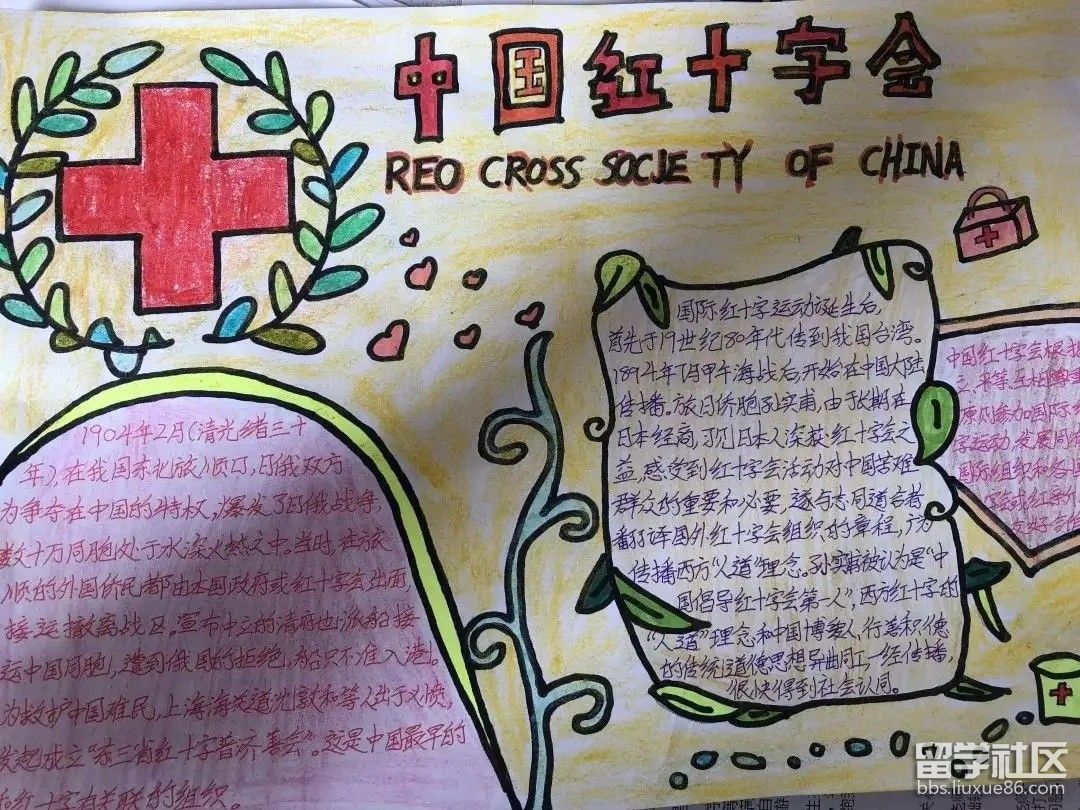 中国红十字会
REO CROSS SOCJE TY OF CHINA
国际红十字运动诞生后,
首先于19世纪80年代传到我国台湾。
1894年7月甲午海战后,开始在中国大陆
传播。旅日侨胞孙实甫,由于长期在
日本经商,习见日本人深获红十字会之
益,感受到红十字会活动对中国苦难
群众的重要和必要,遂与志同道合者
翻译国外红十字会组织的章程,广为
传播西方“人道”理念。孙实甫被认为是“中
国倡导红十字会第一人”,西方红十字的
“人道”理念和中国博爱、行善积德
的传统道德思想异曲同工,一经传播,
很快得到社会认同。
1904年2月(清光绪三十
年),在我国东北旅顺口,日俄双方
为争夺在中国的特权,爆发了日俄战争,
数十万同胞处于水深火热之中。当时,在旅
顺的外国侨民都由本国政府或红十字会出面
接运撤离战区。宣布中立的清府也派船接
运中国同胞,遭到俄国的拒绝,船只不准入港。
为救护中国难民,上海海关道沈敦和等人出于义愤,
发起成立“东三省红十字普济善会”。这是中国最早的
红十字有关联的组织。
中国红十字会根据
立、平等、互相尊重
原则参加国际红
字运动,发展同
国际组织和各国
会或红新月
友好合作
留学社区
bbs.liuxue86.com